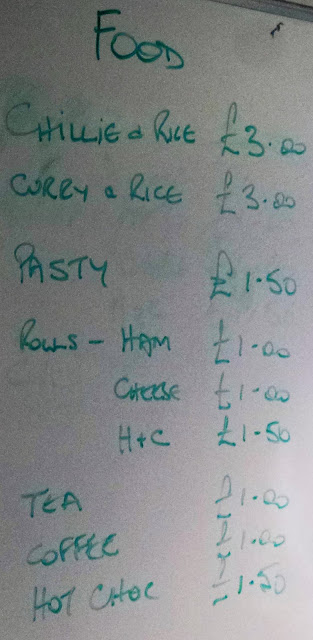 FOOD
CHILLIE & RICE £3.00
CURRY & RICE £3.00
PASTY £1.50
ROLLS - HAM £1.00
CHEESE £1.00
H+C £1.50
TEA £1.00
COFFEE £1.00
HOT CHOC £1.50